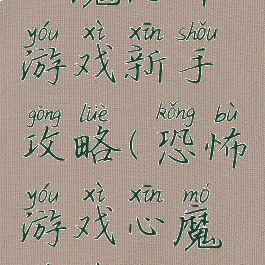 yóu xì xīn shǒu
游戏新手
gōng lüè kǒng bù
攻略(恐怖
yóu xì xīn mó
游戏心魔